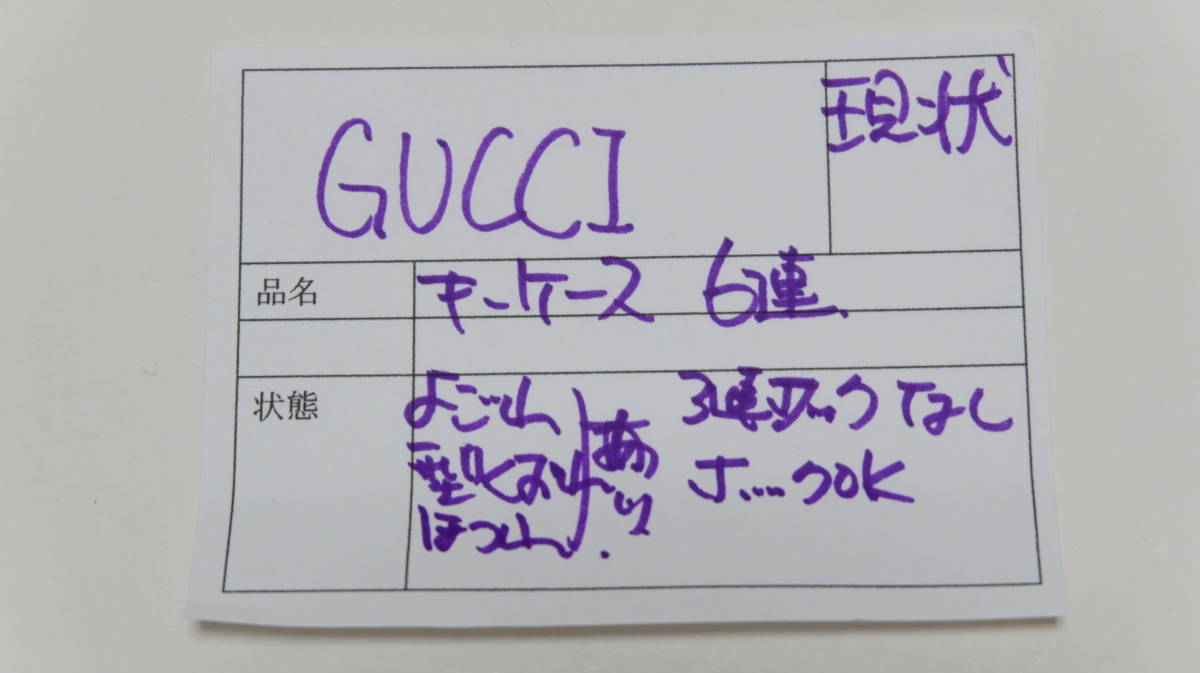 GUCCI
現状
品名
キーケース 6連
状態
よごれ
型くずれ
ほつれ
あり
3連フックなし
ホックOK